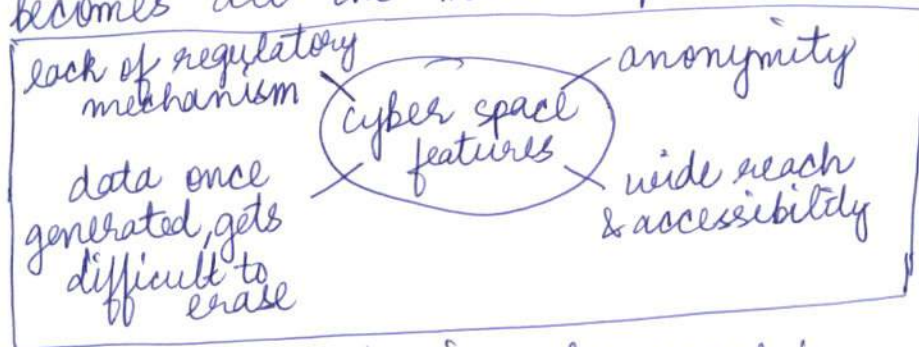 becomes all the
lack of regulatory
mechanism
anonymity
cyber space
features
data once
generated, gets
difficult to
erase
wide reach
& accessibility